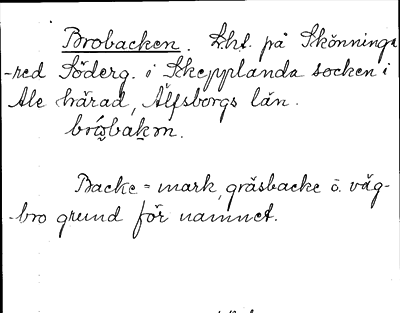 Brobacken. Lht. på Skönninga
-red Söderg. i Skepplanda socken i
Ale härad, Älfsborgs län.
brω̂baḵɱ.
Backe = mark, gräsbacke o. väg-
-bro grund för namnet.